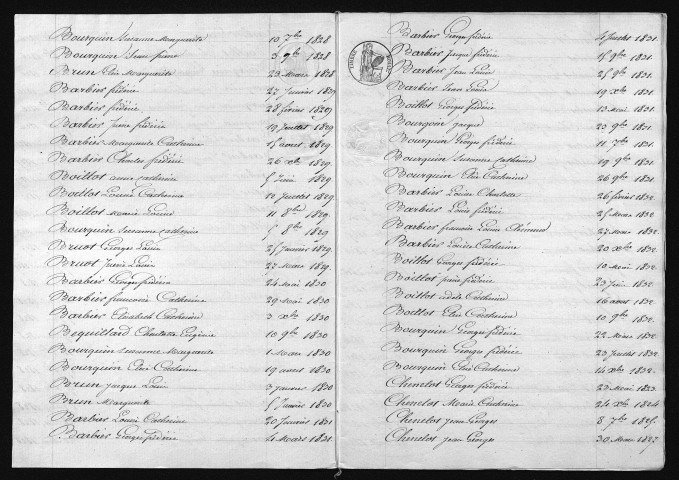 Bourquin Susanne Marguerite 10 7bre 1828
Bourquin Jean pierre 3 9bre 1828
Brun Elie Marguerite 23 Mars 1828
Barbier frédéric 27 Janvier 1829
Barbier frédéric 28 février 1829
Barbier Jame frédéric 19 Juillet 1829
Barbier Marguerite Catherine 15 avout 1829
Barbier Charles frédéric 26 xbre 1829
Boillot anne catherine 5 Juin 1829
Boillot Louise Catherine 12 Juillet 1829
Boillot Marie Louise 11 8bre 1829
Bourquin Susanne Catherine 5 8bre 1829
Bruot Georges Louis 25 Janvier 1829
Bruot Louise 27 Mars 1829
Barbier Georges frédéric 24 Mai 1830
Barbier françoise Catherine 29 Mai 1830
Barbier Elisabeth Catherine 3 xbre 1830
Bequillard Charlotte Eugénie 10 9bre 1830
Bourquin Susanne Marguerite 1 Mars 1830
Bourquin Elise Catherine 19 avout 1830
Brun Jacques Louis 3 Janvier 1830
Brun Marguerite 5 Janvier 1830
Barbier Louise Catherine 20 Janvier 1831
Barbier Georges frédéric 4 Mars 1831
Barbier Georges frédéric 4 Juillet 1831
Barbier Jacques frédéric 15 9bre 1831
Barbier Jean Louis 25 9bre 1831
Barbier Jean Louis 19 xbre 1831
Boillot Georges frédéric 13 Mai 1831
Bourgoin Jacques 23 9bre 1831
Bourquin Georges frédéric 11 7bre 1831
Bourquin Susanne Catherine 19 9bre 1831
Bourquin Elise Catherine 26 9bre 1831
Barbier Louise Charlotte 26 février 1832
Barbier Louis frédéric 25 Mars 1832
Barbier françois Louis 27 Mars 1832
Barbier Louise Catherine 20 xbre 1832
Boillot Georges frédéric 10 Mai 1832
Boillot frédéric 23 Juin 1832
Boillot Catherine 16 avout 1832
Boillot Elise Catherine 10 9bre 1832
Bourquin Georges frédéric 22 Mars 1832
Bourquin Georges frédéric 23 Juillet 1832
Bourquin Elise Catherine 14 xbre 1832
Chenelot Georges frédéric 23 Mai 1823
Chenelot Marie Catherine 24 xbre 1824
Chenelot Jean Georges 8 7bre 1825
Chenelot Jean Georges 30 Mars 1827